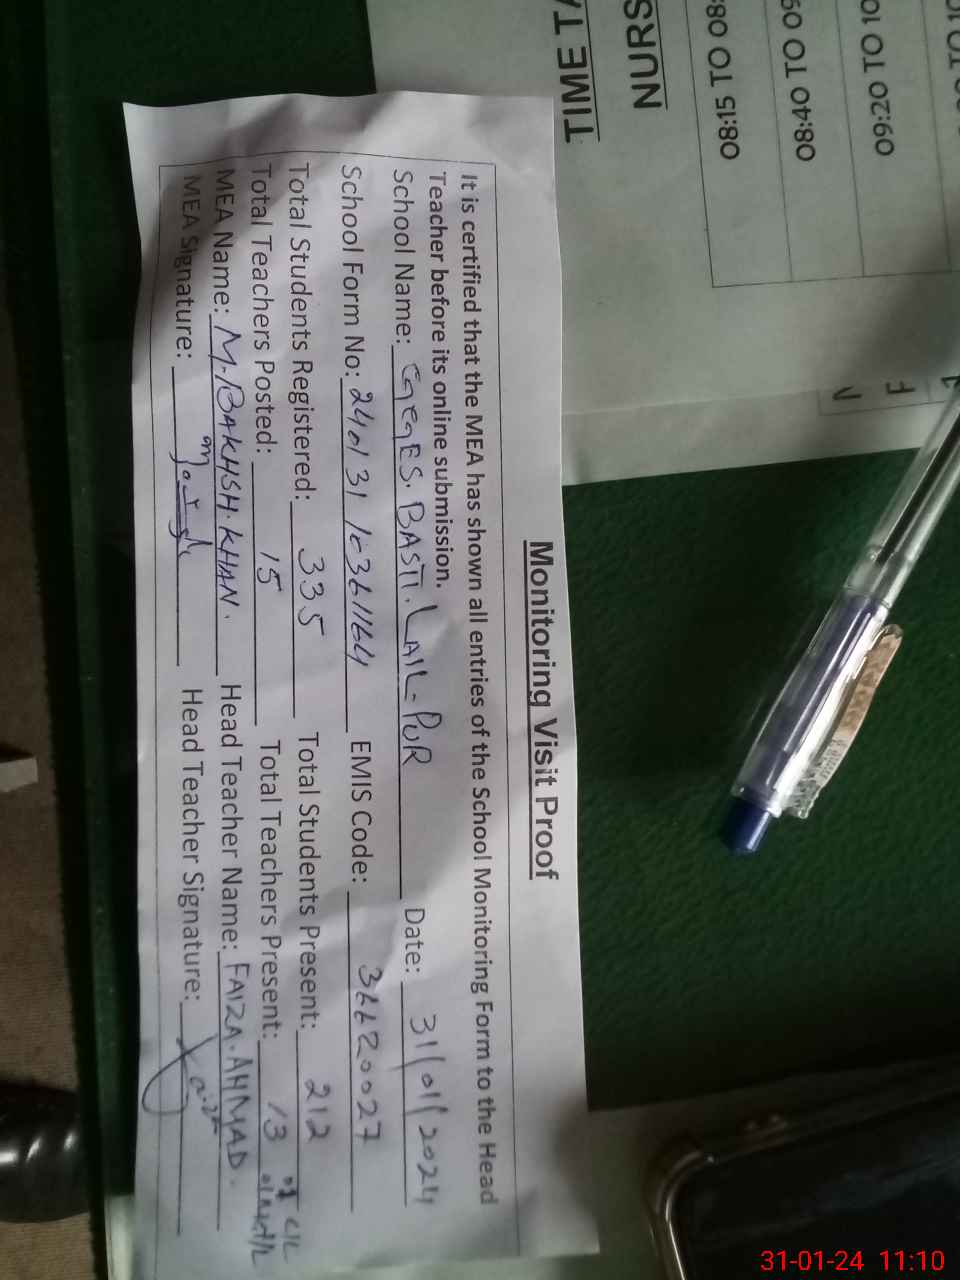 Monitoring Visit Proof
It is certified that the MEA has shown all entries of the School Monitoring Form to the Head
Teacher before its online submission.
School Name: GGES. BASTI. LAIL-PUR Date: 31/01/2024
School Form No: 240131 10361164 EMIS Code: 36620027
Total Students Registered: 335 Total Students Present: 212
Total Teachers Posted: 15 Total Teachers Present: 13
MEA Name: M. BAKHSH. KHAN. Head Teacher Name: FAIZA. AHMAD.
MEA Signature: Head Teacher Signature:
TIME TA
NURS
08:15 TO 08
08:40 TO 09
09:20 TO 10
31-01-24 11:10